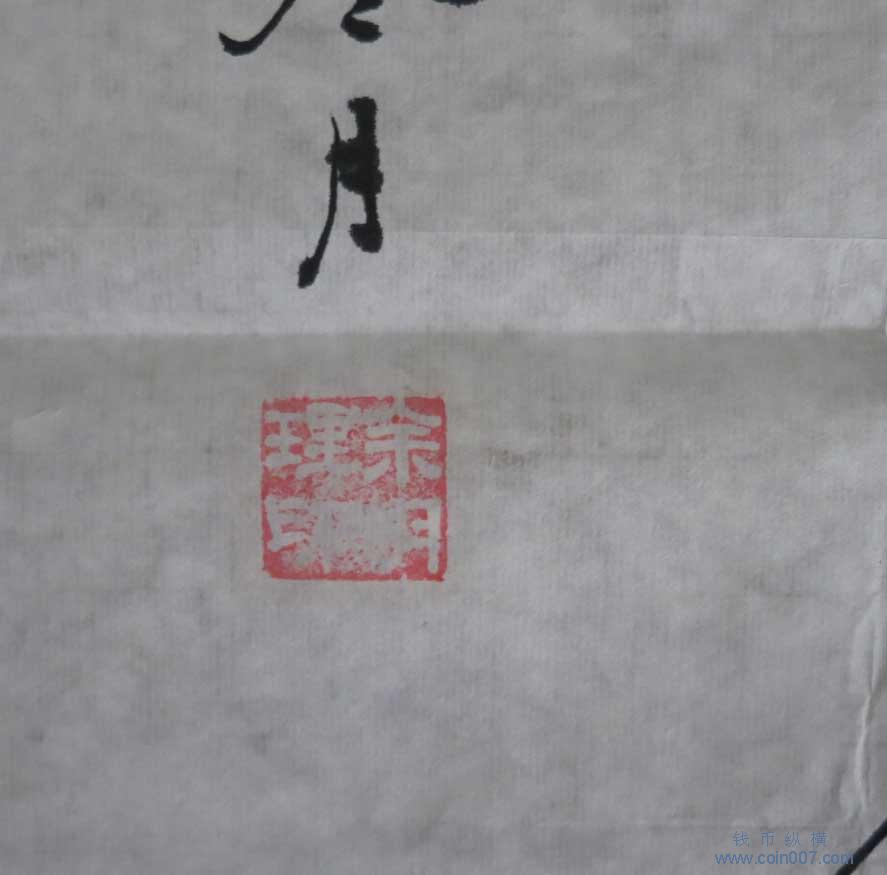 月
余明
印
钱币纵横
www.coin007.com